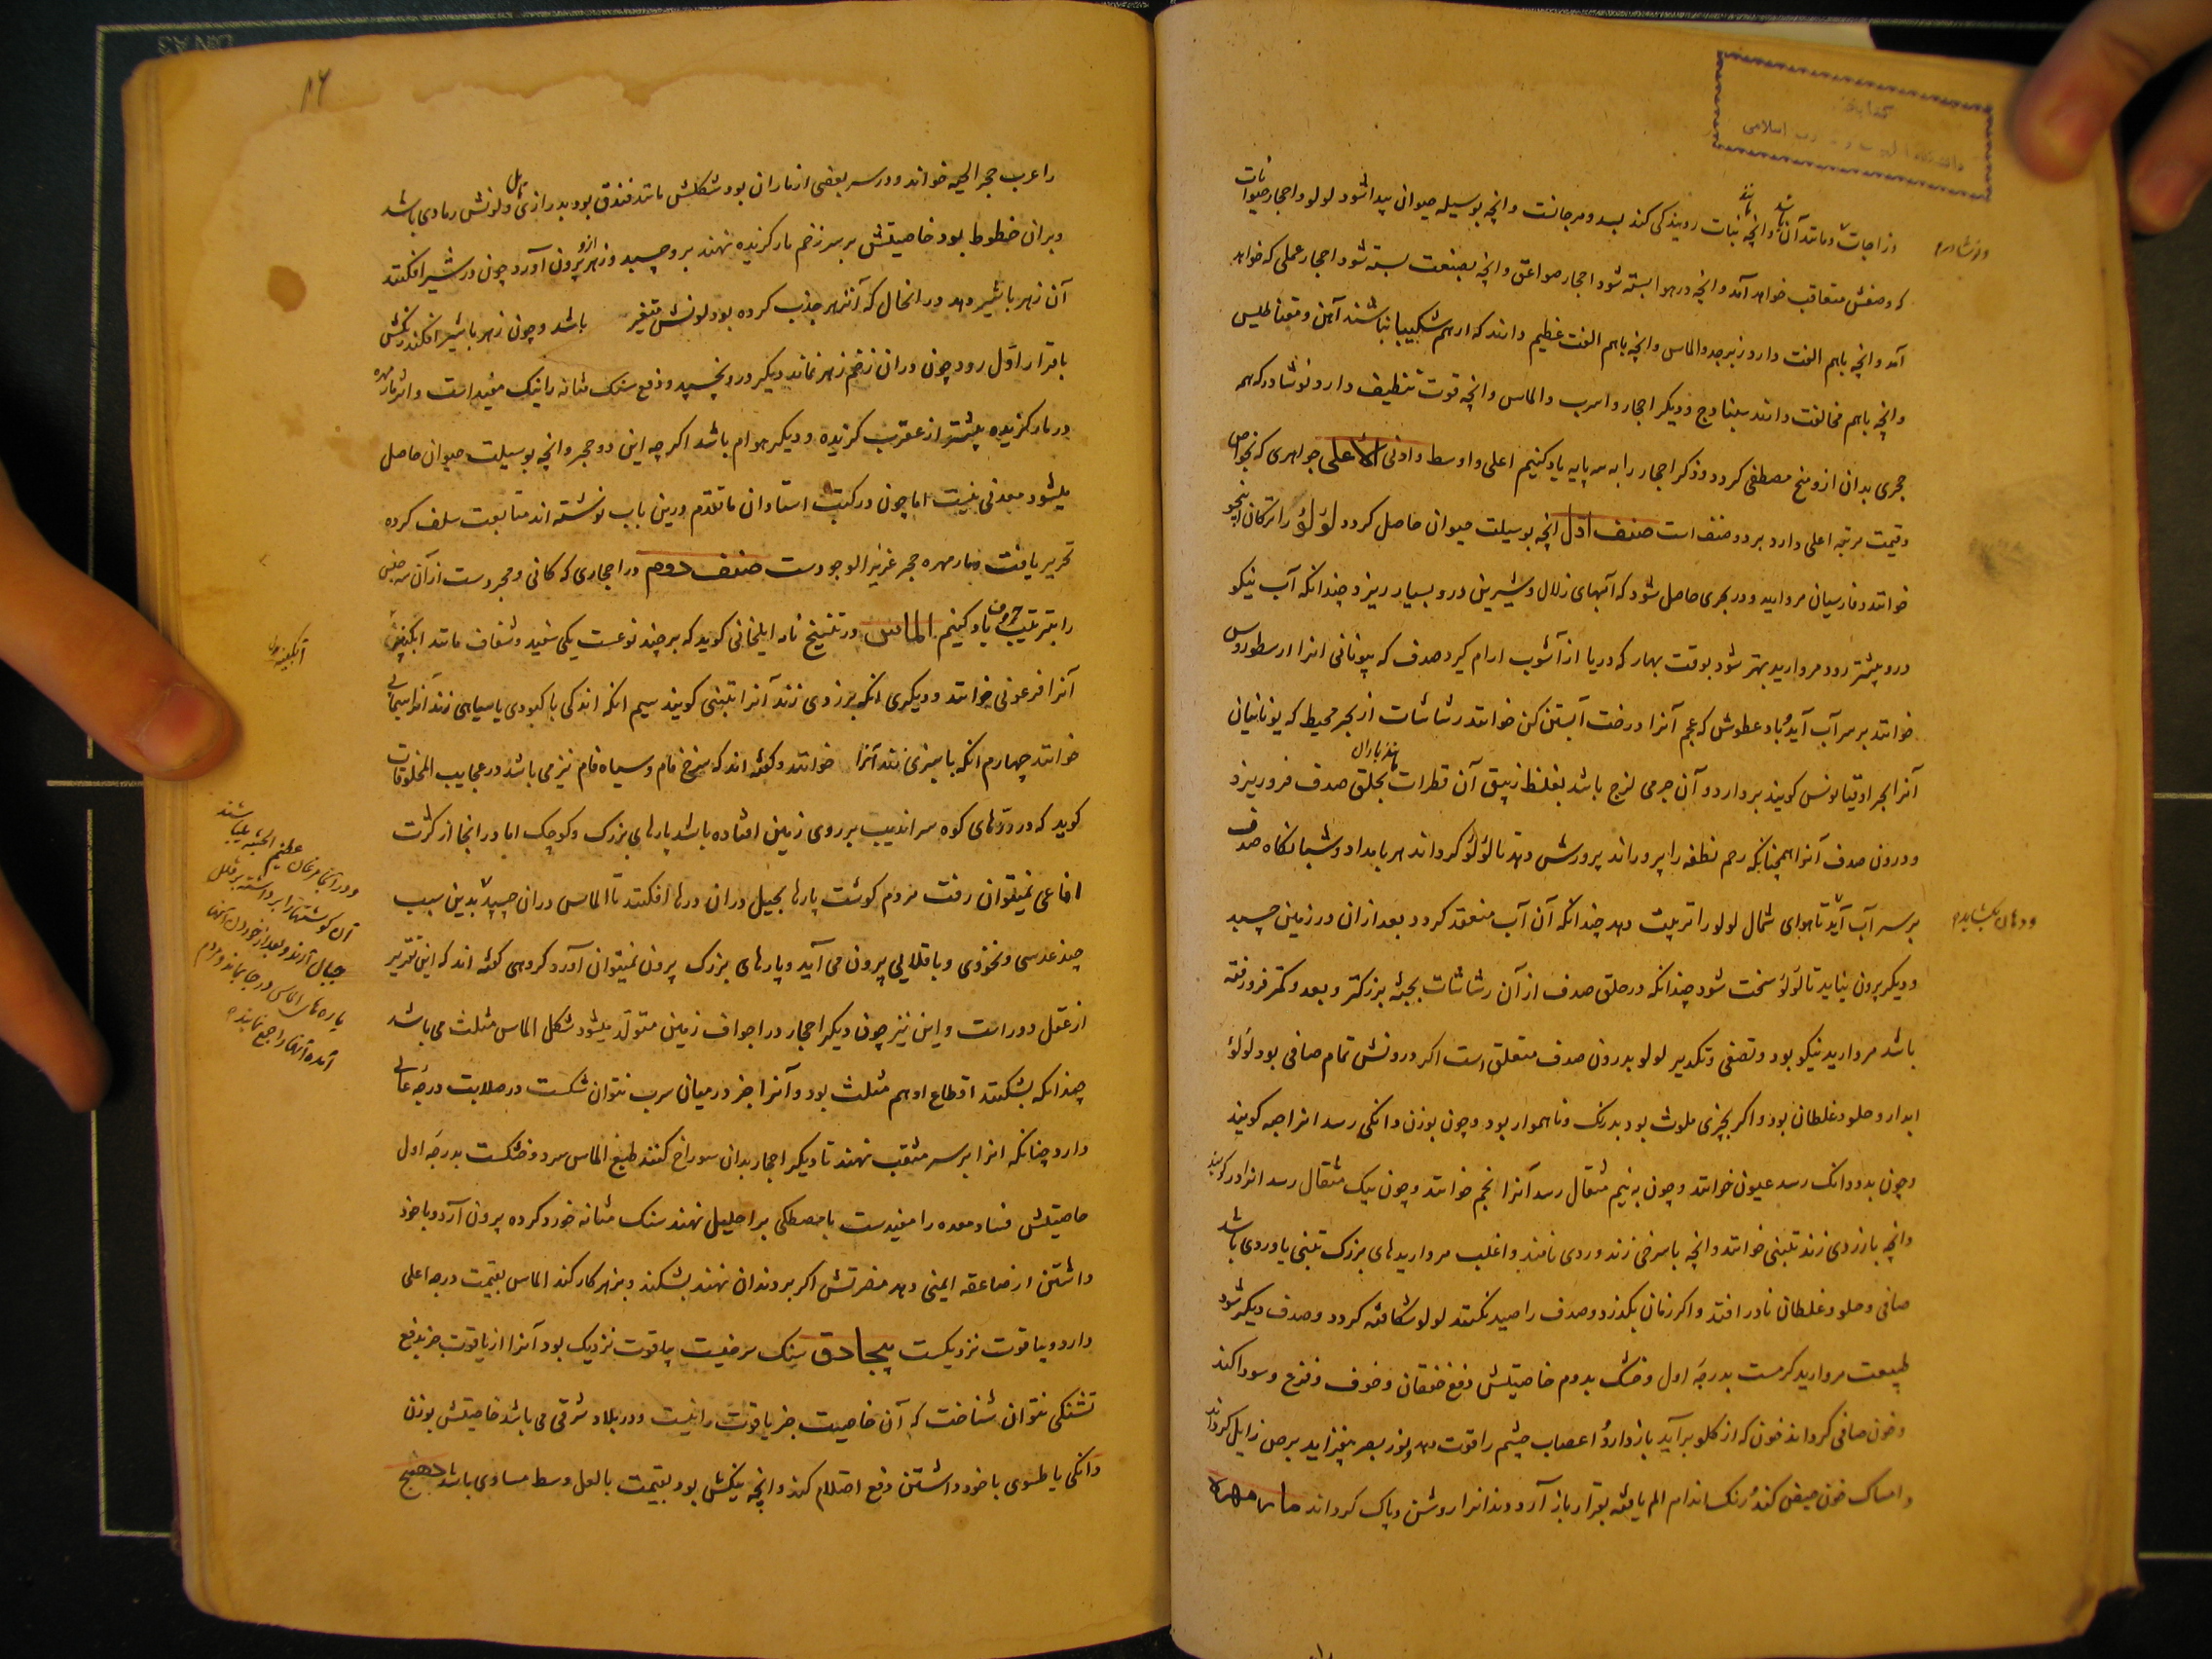 وزاجات و مانند آن باشد وانچه نبات روینده کی کند بسد و مرجانست وانچه بوسیله حیوان پیدا شود لولو واحجار حیوانات
که وصفش متعاقب خواهد آمد وانچه در هوا بسته شود احجار صواعق وانچه بصنعت بسته شود احجار عملی که خواهد
آمد وانچه باهم الفت دارد زبرجد والماس وانچه باهم الفت عظیم دارند که ازهم شکیبا نباشند آهن ومقناطیس
وانچه باهم مخالفت دارند سنبادج ودیگر احجار واسرب والماس وانچه قوت تنظیف دارد نوشادر که همه
حجری بدان از وسخ مصطفی کردد وذکر احجار را به سه پایه یاد کنیم اعلی واوسط وادنی الاعلی جواهری که بخواص
وقیمت مرتبه اعلی دارد بر دو صنف است صنف اول انچه بوسیلت حیوان حاصل کردد لؤلؤ را ترکان اینجو
خوانند وفارسیان مروارید ودر بحری حاصل شود که آبهای زلال وشیرین درو بسیار ریزد چندانکه آب نیکو
درو بیشتر رود مروارید بهتر شود بوقت بهار که دریا از آشوب ارام کیرد صدف که بیونانی انرا ارسطوروس
خوانند بر سر آب آید وباد عطوش که عجم آنرا درخت آبستن کن خوانند رشاشات از بحر محیط که یونانیان
آنرا بحر اوقیانوس کویند بردارد و آن جرمی لزج باشد بغلظ زیبق آن قطرات بحلق صدف فرو ریزد
مانند باران
ودرون صدف آنرا همچنانکه رحم نطفه را پروراند پرورش دهد تا لؤلؤ کرداند هر بامداد وشبانکاه صدف
بر سر آب آید تا هوای شمال لولو را تربیت دهد چندانکه آن آب منعقد کردد بعد ازان در زمین چسبد
ودهان بکشاید
ودیکر برون نیاید تا لؤلؤ سخت شود چندانکه در حلق صدف از آن رشاشات بجثه بزرکتر وبعدد کمتر فرو رفته
باشد مروارید نیکو بود وتصفی وتکدیر لولو بدرون صدف متعلق است اکر درونش تمام صافی بود لؤلؤ
ابدار وحلو وغلطان بود واکر بچیزی ملوث بود بدرنک وناهموار بود وچون بوزن دانکی رسد انرا حبه کویند
وچون بدو دانک رسد عیون خوانند وچون به نیم مثقال رسد آنرا نجم خوانند وچون بیک مثقال رسد انرا در کویند
وانچه با زردی زند تبنی خوانند وانچه با سرخی زند وردی نامند واغلب مرواریدهای بزرک تبنی یا وردی باشد
صافی وحلو وغلطان نادر افتد واکر زمان بکذرد وصدف را صید نکنند لولو شکافته کردد وصدف دیکر شود
طبیعت مروارید کرمست بدرجه اول وخشک بدوم خاصیتش دفع خفقان وخوف وفزع وسودا کند
وخون صافی کرداند خون که از کلو برآید بازدارد واعصاب چشم را قوت دهد ونور بصر بیفزاید برص زایل کرداند
وامساک خون حیض کند ورنک اندام الم یافته بقرار باز آرد ودندانرا روشن وپاک کرداند مار مهره
۱۶
را عرب حجر الحیه خوانند ودر سر بعضی از ماران بود شکلش مانند فندق بود بدرازی مایل ولونش رمادی باشد
وبران خطوط بود خاصیتش بر سر زخم مار کزیده نهند برو چسبد وزهر ازو برون آورد چون در شیر افکنند
آن زهر با شیر دهد در انحال که آنزهر جذب کرده بود لونش متغیر باشد وچون زهر با شیر افکند رنکش
باقرار اول رود چون دران زخم زهر نماند دیکر درو نچسبد ودفع سنک مثانه را نیک مفیداست واثر مار مهره
در مار کزیده بیشتر از عقرب کزیده ودیکر هوام باشد اکرچه این دو حجر وانچه بوسیلت حیوان حاصل
میشود معدنی نیست اما چون در کتب استادان ماتقدم درین باب نوشته اند متابعت سلف کرده
تحریر یافت ومار مهره حجر عزیز الوجودست صنف دوم در احجاری که کانی ومجردست از آن سه جنس
را بترتیب حروف یاد کنیم الماس در تنسیخ نامه ایلخانی کوید که بر چند نوعست یکی سفید وشفاف مانند ابکینه
آبکینه
آنرا فرعونی خوانند ودیکری انکه بزردی زند آنرا تبنی کویند سیم انکه اندکی با کبودی یا سیاهی زند آنرا سیمابی
خوانند چهارم انکه با سبزی زند آنرا خوانند وکفته اند که سرخ فام وسیاه فام نیز می باشد در عجایب المخلوقات
کوید که در درهای کوه سراندیب بر روی زمین افتاده باشد پارهای بزرک وکوچک اما در انجا از کثرت
افاعی نمیتوان رفت مردم کوشت پارها بحیل دران درها افکنند تا الماس دران چسبد بدین سبب
ودر آنجا مرغان عظیم الجثه میباشند
آن کوشتها را برداشته بر قلل
جبال آرند وبعد از خوردن آنها
پاره های الماس در جا بماند ومردم
آمده آنها را جمع نمایند
چند عدسی ونخودی وباقلایی برون می آید وپارهای بزرک برون نمیتوان آورد کروهی کفته اند که این تقریر
از عقل دور است واین نیز چون دیکر احجار در اجواف زمین متولد میشود شکل الماس مثلث می باشد
چندانکه بشکنند اقطاع او هم مثلث بود وآنرا جز در میان سرب نتوان شکست در صلابت درجه عالی
دارد چنانکه انرا بر سر مثقب نهند تا دیکر احجار بدان سوراخ کنند طبع الماس سرد وخشکست بدرجه اول
خاصیتش فساد معده را مفیدست با مصطکی بر احلیل نهند سنک مثانه خورد کرده برون آرد وبا خود
داشتن از صاعقه ایمنی دهد مضرتش اکر بر دندان نهند بشکند وبزهر کار کند الماس بقیمت درجه اعلی
دارد وبیاقوت نزدیکست بیجادق سنک سرخیست بیاقوت نزدیک بود آنرا از یاقوت جز بدفع
تشنکی نتوان شناخت که آن خاصیت جز یاقوت را نیست ودر بلاد شرقی می باشد خاصیتش بوزن
دانکی یا طسوی با خود داشتن دفع احتلام کند وانچه نیکش بود بقیمت با لعل وسط مساوی باشد دهنج